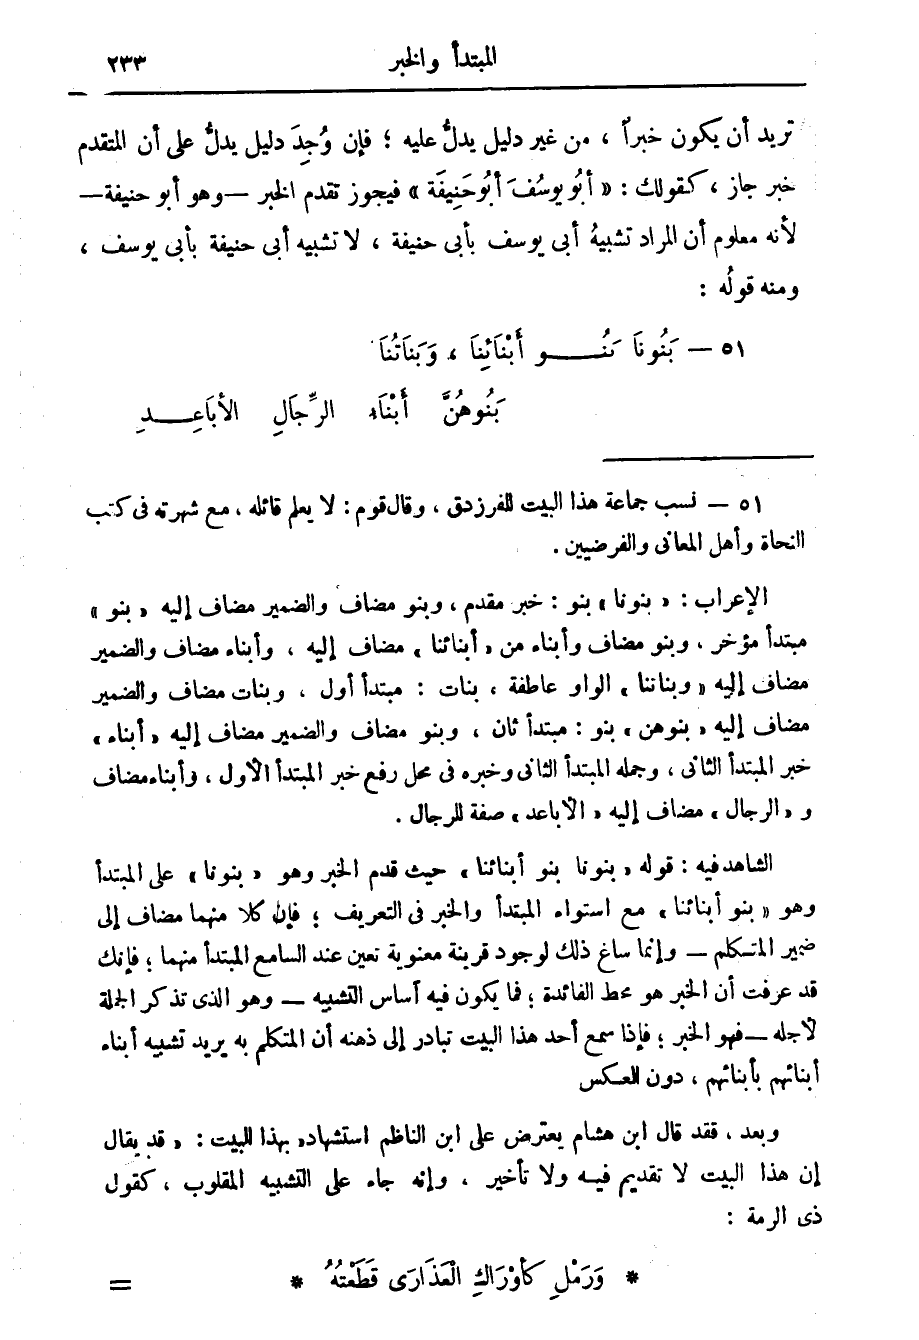 المبتدأ والخبر ٢٣٣
تريد أن يكون خبراً ، من غير دليل يدلُّ عليه ؛ فإن وُجِدَ دليل يدلُّ على أن المتقدم
خبر جاز ، كقولك : « أَبُو يوسُفَ أَبُو حَنِيفَة » فيجوز تقدم الخبر —وهو أبو حنيفة—
لأنه معلوم أن المراد تشبيهُ أبى يوسف بأبى حنيفة ، لا تشبيه أبى حنيفة بأبى يوسف ،
ومنه قولُه :
٥١ — بَنُونَا بَنُـــو أَبْنَائِنَا ، وَبَنَاتُنَا
بَنُوهُنَّ أَبْنَاءُ الرِّجَالِ الأَبَاعِـــدِ
٥١ — نسب جماعة هذا البيت للفرزدق ، وقال قوم : لا يعلم قائله ، مع شهرته فى كتب
النحاة وأهل المعانى والفرضيين .
الإعراب : « بنونا » بنو : خبر مقدم ، وبنو مضاف والضمير مضاف إليه « بنو »
مبتدأ مؤخر ، وبنو مضاف وأبناء من « أبنائنا » مضاف إليه ، وأبناء مضاف والضمير
مضاف إليه « وبناتنا » الواو عاطفة ، بنات : مبتدأ أول ، وبنات مضاف والضمير
مضاف إليه « بنوهن » بنو : مبتدأ ثان ، وبنو مضاف والضمير مضاف إليه « أبناء »
خبر المبتدأ الثانى ، وجمله المبتدأ الثانى وخبره فى محل رفع خبر المبتدأ الأول ، وأبناء مضاف
و « الرجال » مضاف إليه « الأباعد » صفة للرجال .
الشاهد فيه : قوله « بنونا بنو أبنائنا » حيث قدم الخبر وهو « بنونا » على المبتدأ
وهو « بنو أبنائنا » مع استواء المبتدأ والخبر فى التعريف ؛ فإن كلا منهما مضاف إلى
ضمير المتكلم — وإنما ساغ ذلك لوجود قرينة معنوية تعين عند السامع المبتدأ منهما ؛ فإنك
قد عرفت أن الخبر هو محط الفائدة ؛ فما يكون فيه أساس التشبيه — وهو الذى تذكر الجملة
لأجله — فهو الخبر ؛ فإذا سمع أحد هذا البيت تبادر إلى ذهنه أن المتكلم به يريد تشبيه أبناء
أبنائهم بأبنائهم ، دون العكس
وبعد ، فقد قال ابن هشام يعترض على ابن الناظم استشهاده بهذا البيت : « قد يقال
إن هذا البيت لا تقديم فيه ولا تأخير ، وإنه جاء على التشبيه المقلوب ، كقول
ذى الرمة :
* وَرَمْلٍ كَأَوْرَاكِ الْعَذَارَى قَطَعْتُهُ * =